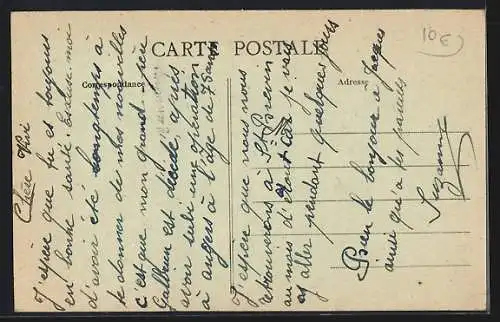 CARTE POSTALE
Correspondance
Adresse
10€
Chère Vivi
J'espère que tu es toujours
en bonne santé. Excuse-moi
d'avoir été longtemps à
te donner de mes nouvelles
c'est que mon grand-père
est décédé après
avoir subi une opération
à angers à l'âge de 75 ans
J'espère que nous nous
retrouverons à St Brevin
au mois d'août car je vais
y aller pendant quelques jours
Bien le bonjour à Jacques
ainsi qu'à tes parents
Suzanne